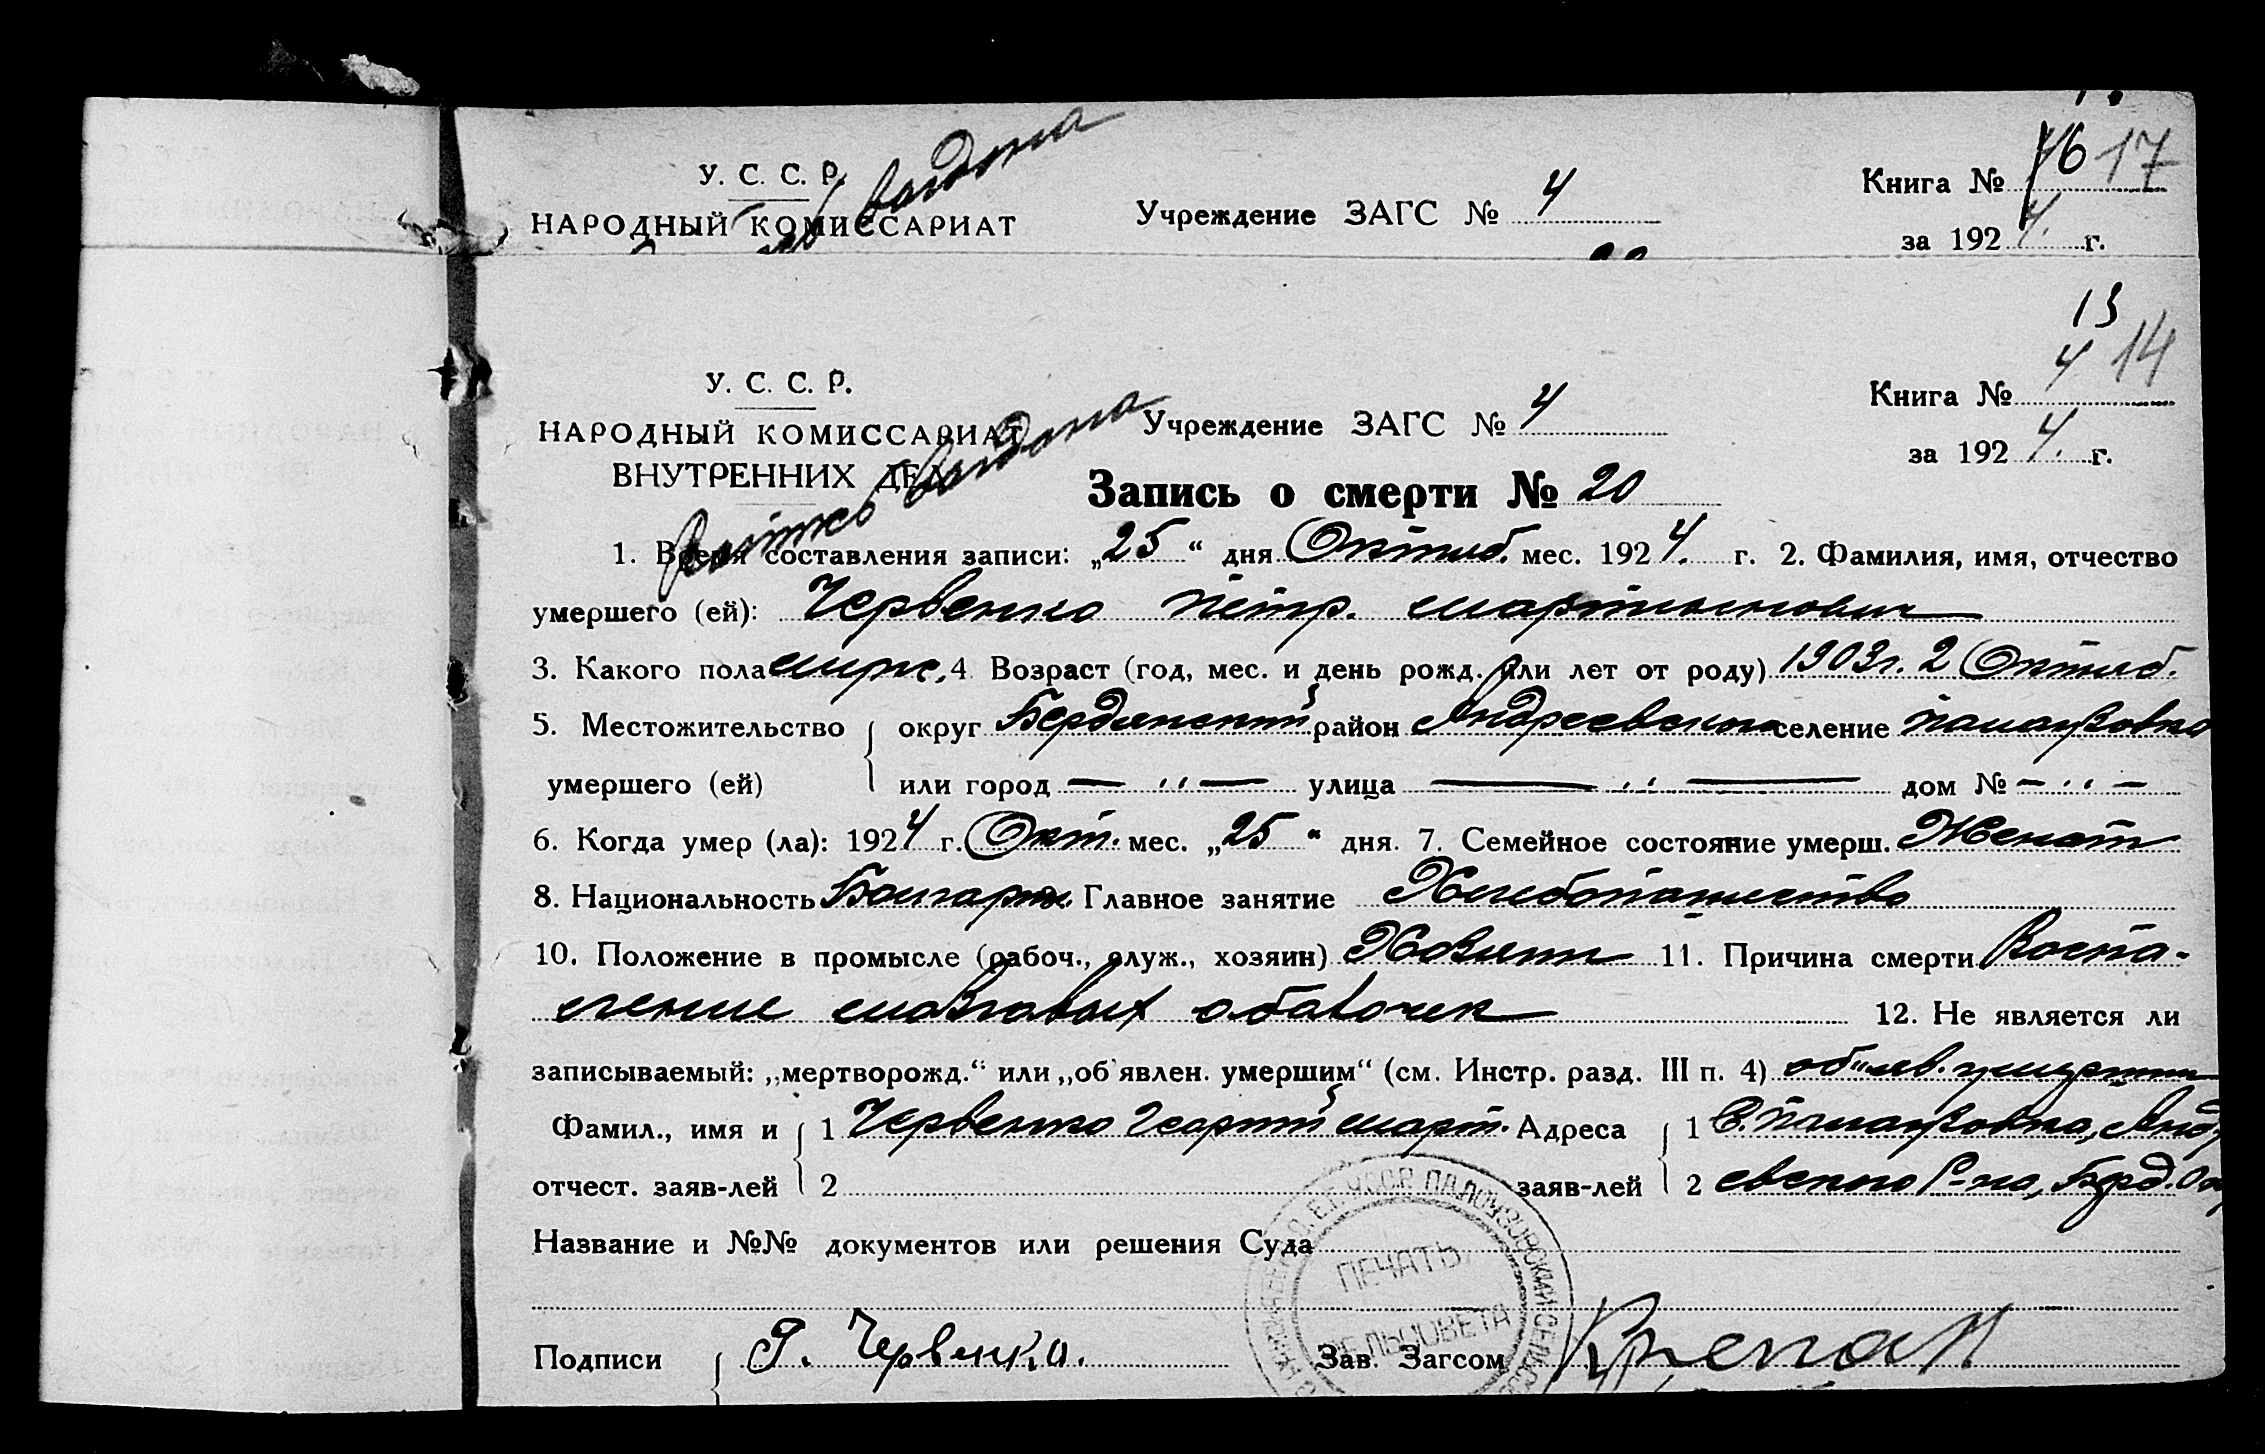 У. С. С. Р.
НАРОДНЫЙ КОМИССАРИАТ
Учреждение ЗАГС № 4
Книга № 16 17
за 1924. г.
13
У. С. С. Р.
НАРОДНЫЙ КОМИССАРИАТ
ВНУТРЕННИХ ДЕЛ
Учреждение ЗАГС № 4
Книга № 4 14
за 1924. г.
Запись о смерти № 20
1. Время составления записи: „25“ дня Октяб. мес. 1924. г. 2. Фамилия, имя, отчество
умершего (ей): Червенко Петр. Мартынович
3. Какого пола муж. 4 Возраст (год, мес. и день рожд. или лет от роду) 1903 г. 2 Октяб.
5. Местожительство округ Бердянский район Андреевского селение Палаузовка
умершего (ей) или город — „ — улица — „ — дом № — „ —
6. Когда умер (ла): 1924 г. Окт. мес. „25“ дня. 7. Семейное состояние умерш. Женат
8. Национальность Болгарин. Главное занятие Хлебопашество
10. Положение в промысле (рабоч., служ., хозяин) Хозяин 11. Причина смерти Воспа-
ление мозговых обалочек 12. Не является ли
записываемый: „мертворожд.“ или „об'явлен. умершим“ (см. Инстр. разд. III п. 4) об"яв. умершим
Фамил., имя и 1 Червенко Георгий Март. Адреса 1 С. Палаузовка, Андре
отчест. заяв-лей 2 заяв-лей 2 евского Р-на, Берд. Ок
Название и №№ документов или решения Суда
ПЕЧАТЬ
СЕЛЬСОВЕТА
Подписи Г. Червенко. Зав. Загсом